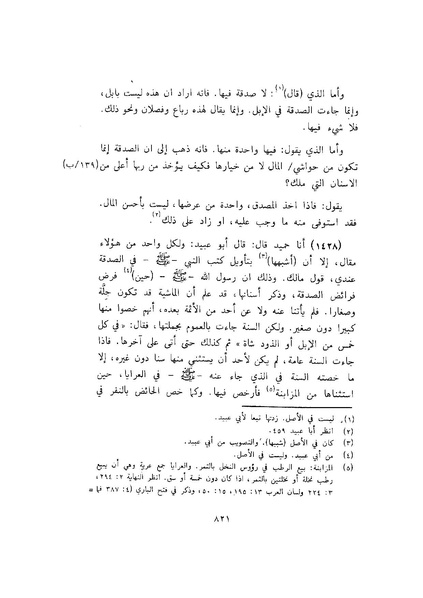 وأما الذي (قال)(١): لا صدقة فيها. فانه اراد ان هذه ليست بابل،
وإنما جاءت الصدقة في الإبل. وإنما يقال لهذه رباع وفصلان ونحو ذلك.
فلا شيء فيها.
وأما الذي يقول: فيها واحدة منها. فانه ذهب إلى ان الصدقة إنما
تكون من حواشي/ المال لا من خيارها فكيف يؤخذ من ربها أعلى من (١٣٩/ب)
الاسنان التي ملك؟
يقول: فاذا اخذ المصدق، واحدة من عرضها، ليست بأحسن المال.
فقد استوفى منه ما وجب عليه، او زاد على ذلك(٢).
(١٤٢٨) أنا حميد قال: قال أبو عبيد: ولكل واحد من هؤلاء
مقال، إلا أن (أشبهها)(٣) بتأويل كتب النبي - ﷺ - في الصدقة
عندي، قول مالك. وذلك ان رسول الله - ﷺ - (حين)(٤) فرض
فرائض الصدقة، وذكر أسنانها، قد علم أن الماشية قد تكون جلّة
وصغارا. فلم يأتنا عنه ولا عن أحد من الأئمة بعده، أنهم خصوا منها
كبيرا دون صغير. ولكن السنة جاءت بالعموم بجملتها، فقال: «في كل
خمس من الإبل أو الذود شاة» ثم كذلك حتى أتى على آخرها. فاذا
جاءت السنة عامة، لم يكن لأحد أن يستثني منها سنا دون غيره، إلا
ما خصته السنة في الذي جاء عنه - ﷺ - في العرايا، حين
استثناها من المزابنة(٥) فأرخص فيها. وكما خص الحائض بالنفر في
(١) ليست في الأصل. زدتها تبعا لأبي عبيد.
(٢) انظر أبا عبيد ٤٥٩.
(٣) كان في الأصل (شبيها). والتصويب من أبي عبيد.
(٤) من أبي عبيد. وليست في الأصل.
(٥) المزابنة: بيع الرطب في رؤوس النخل بالتمر. والعرايا جمع عرية وهي أن يبيع
رطب نخلة أو نخلتين بالتمر، اذا كان دون خمسة أو سق. انظر النهاية ٢: ٢٩٤،
٣: ٢٢٤ ولسان العرب ١٣: ١٩٥، ١٥: ٥٠، وذكر في فتح الباري (٤: ٣٨٧ فما =
٨٢١